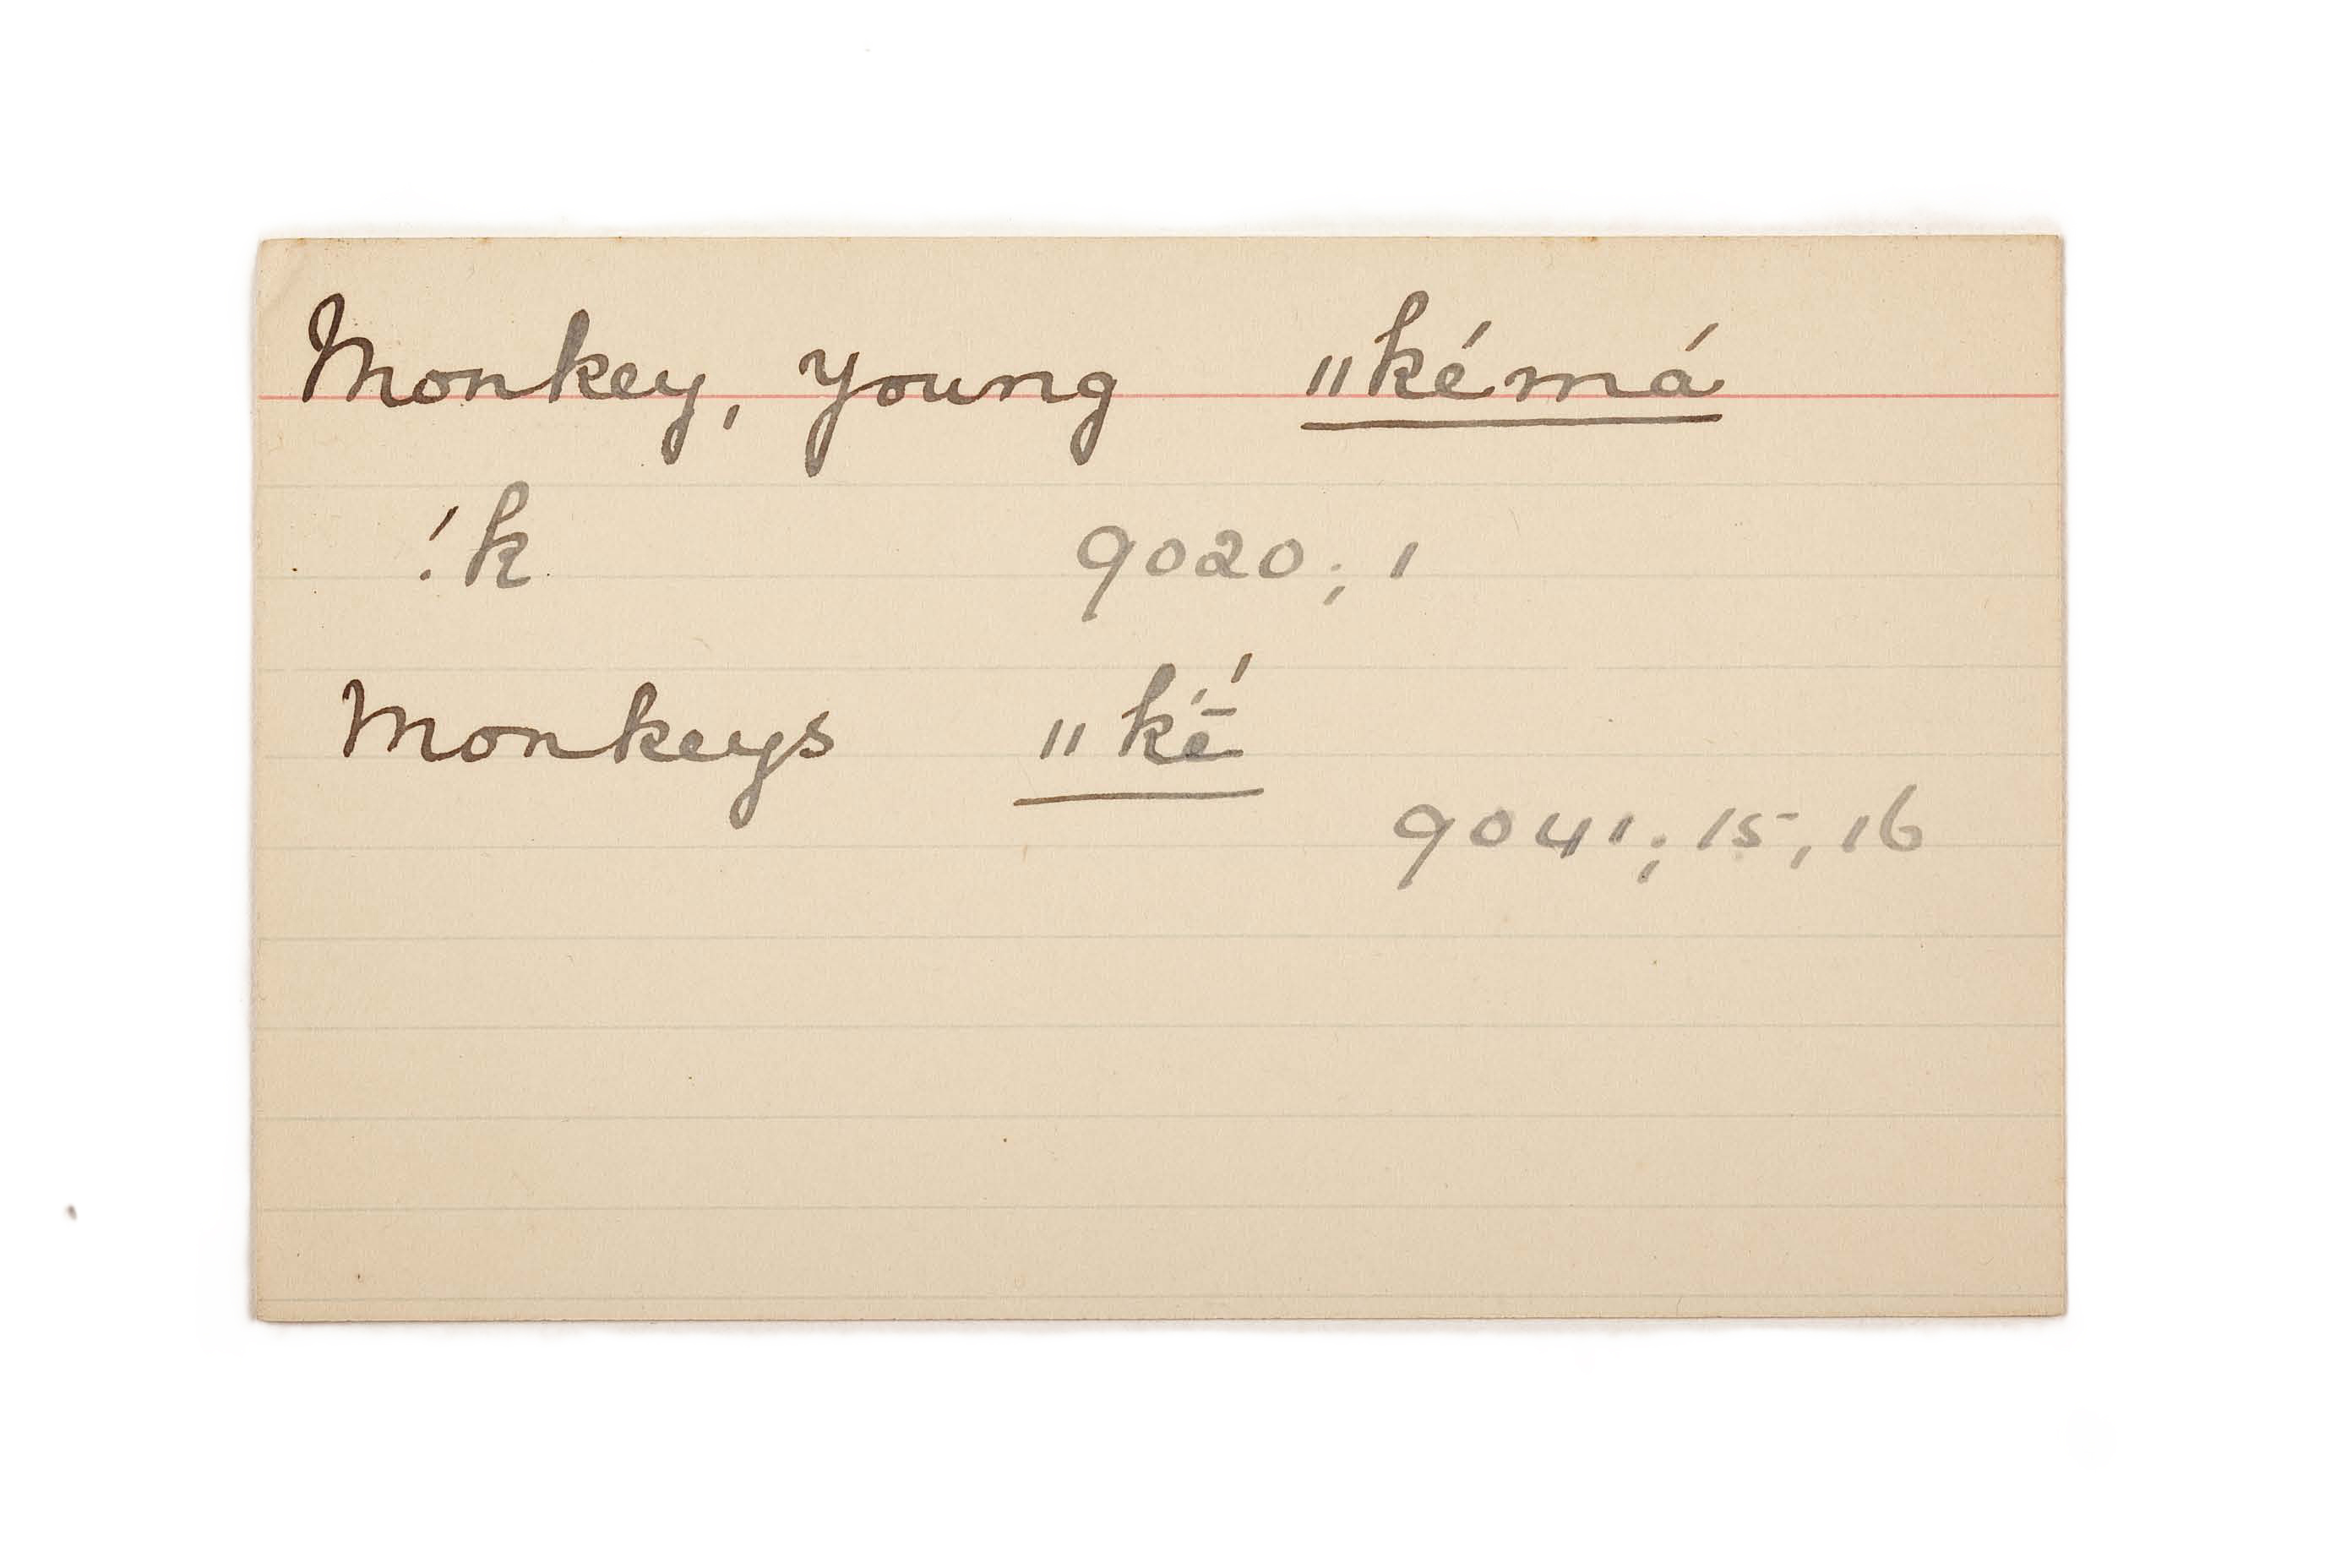 Monkey, young ‖kémá
!k 9020; 1
Monkeys ‖ké̄́
9041; 15, 16